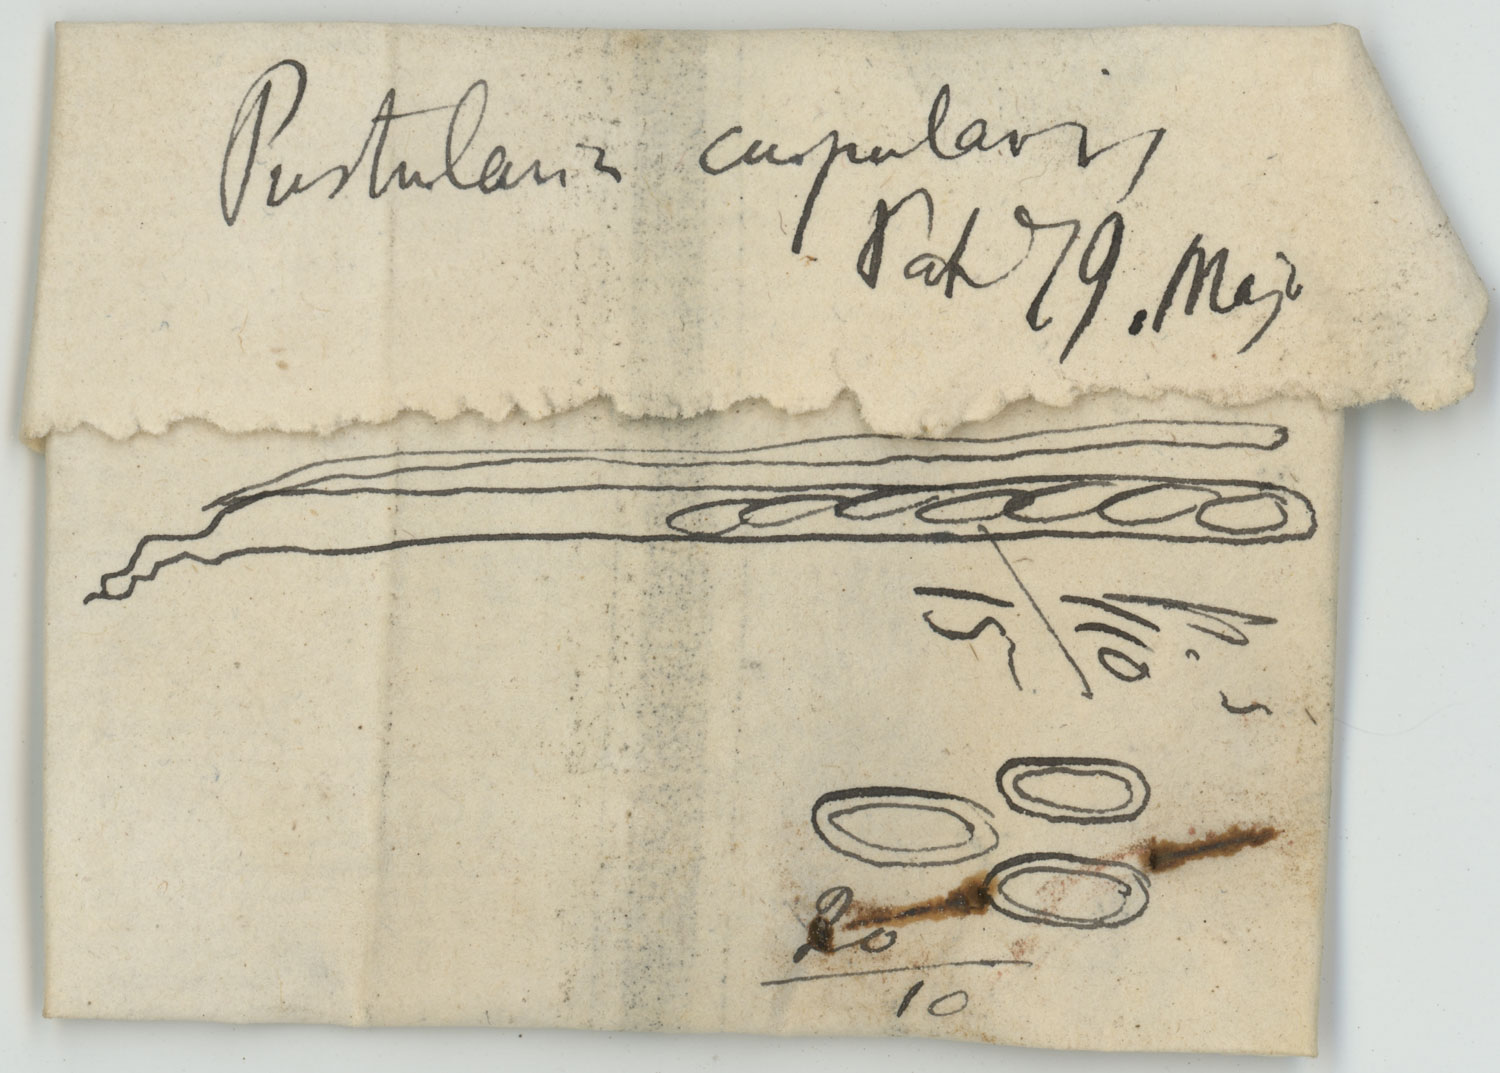 Pustularia cupularis
Pat 79. Majo
15
110
20
10